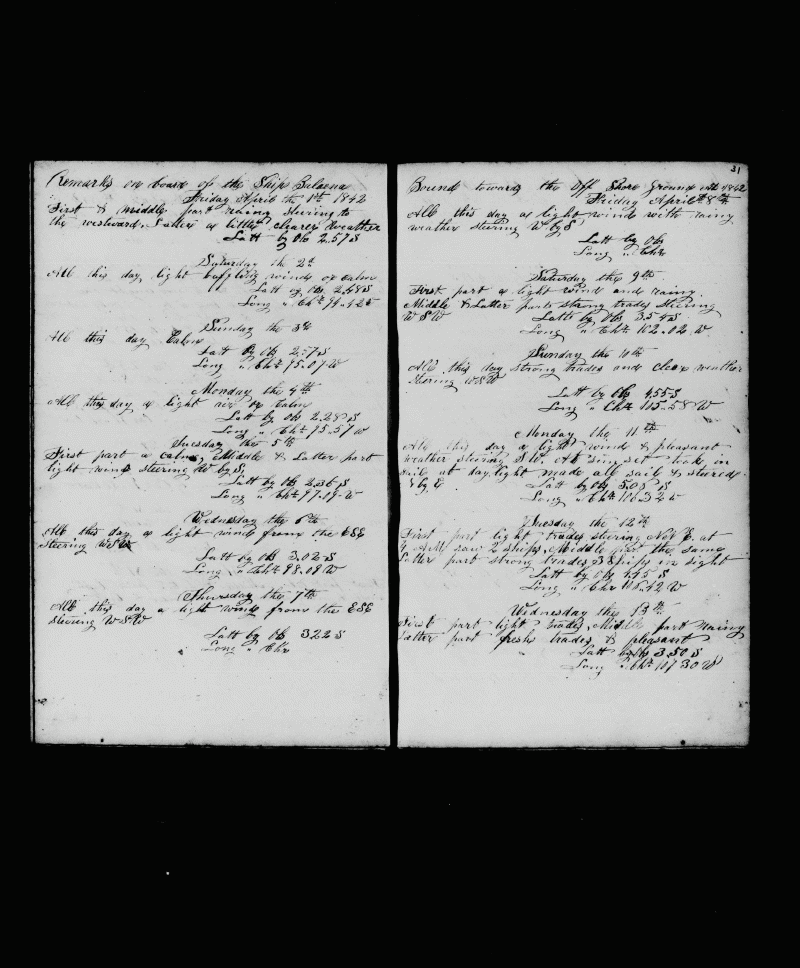 Remarks on board of the Ship Balaena
Friday April the 1st 1842
First & middle part rainy steering to
the westward. Latter a little clearer weather
Latt by Ob 2.57 S
Saturday the 2d
All this day light baffling winds or calm
Latt by Ob 2.48 S
Long " Chr
Sunday the 3d
All this day Calm
Latt by Ob S
Long " Chr 95.07 W
Monday the 4th
All this day a light air or Calm
Latt by Ob 2.28 S
Long " Chr 95.57 W
Tuesday the 5th
First part a calm, Middle & Latter part
light wind steering W by S,
Latt by Ob 2.36 S
Long " Chr W
Wednesday the 6th
All this day a light wind from the ESE
Steering WSW
Latt by Ob 3.02 S
Long " Chr 98.08 W
Thursday the 7th
All this day a light wind from the ESE
Steering WSW
Latt by Ob 3.22 S
Long " Chr
31
Bound towards the Off Shore Ground 1842
Friday April 8th
All this day a light wind with rainy
weather steering W by S
Latt by Ob
Long " Chr
Saturday the 9th
First part a light wind and rainy.
Middle & Latter parts strong trades steering
WSW
Latt by Ob 3.54 S
Long " Chr 102.02 W
Sunday the 10th
All this day strong trades and clear weather
Steering WSW
Latt by Ob 4.55 S
Long " Chr 105.58 W
Monday the 11th
All this day a light wind & pleasant
weather steering SW. At sun set took in
sail at day light made all sail & steered
Latt by Ob 5.08 S
Long " Chr
Tuesday the 12th
First part light trades steering N by E. at
4 AM saw 2 Ships, Middle part the same
Latter part strong trades 3 Ships in sight
Latt by Ob S
Long " Chr W
Wednesday the 13th
First part light trades, Middle part rainy
Latter part fresh trades & pleasant
Latt by Ob 3.50 S
Long " Chr 107 30 W